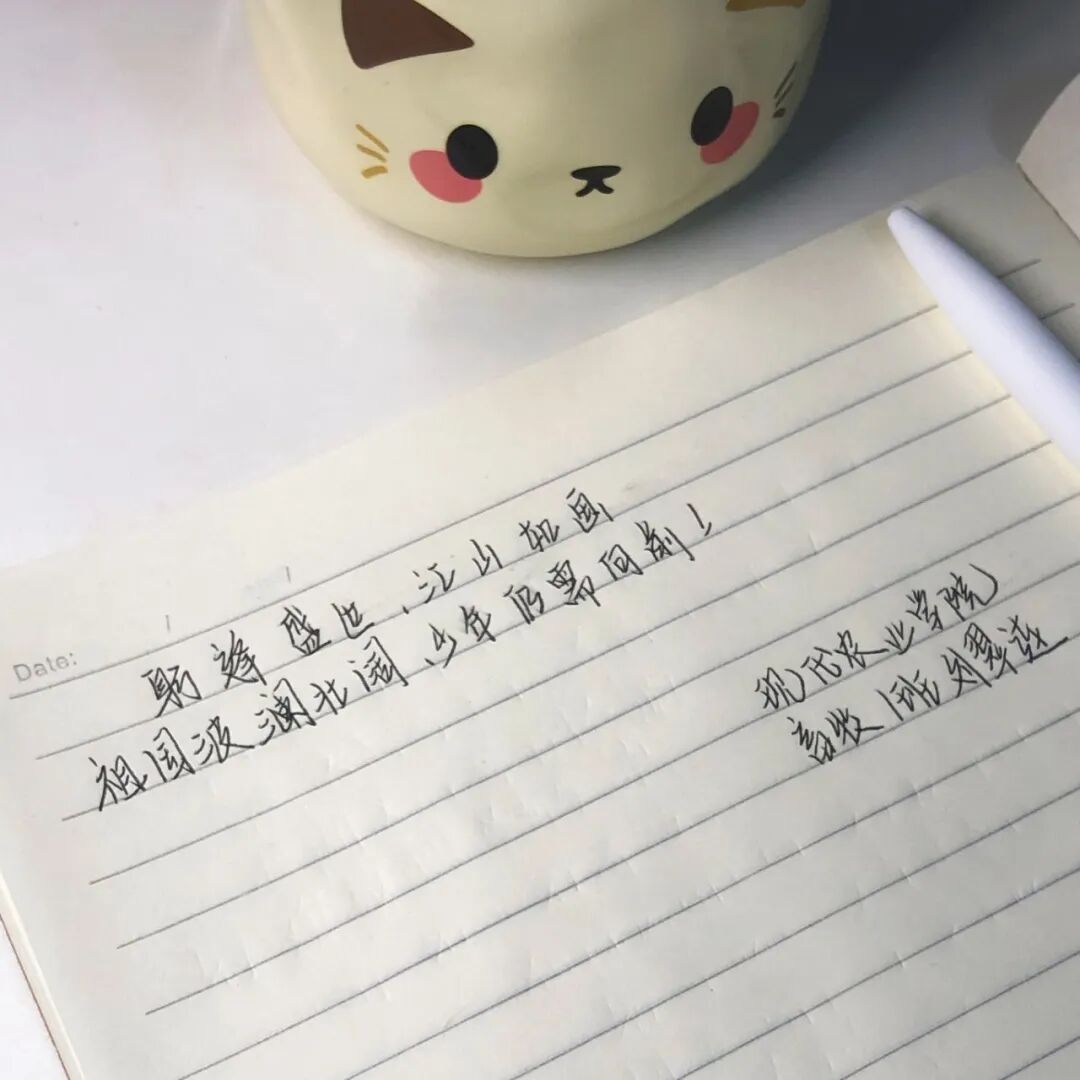 Date:
躬逢盛世、江山如画
祖国波澜壮阔、少年仍需向前！
现代农业学院
畜牧1班